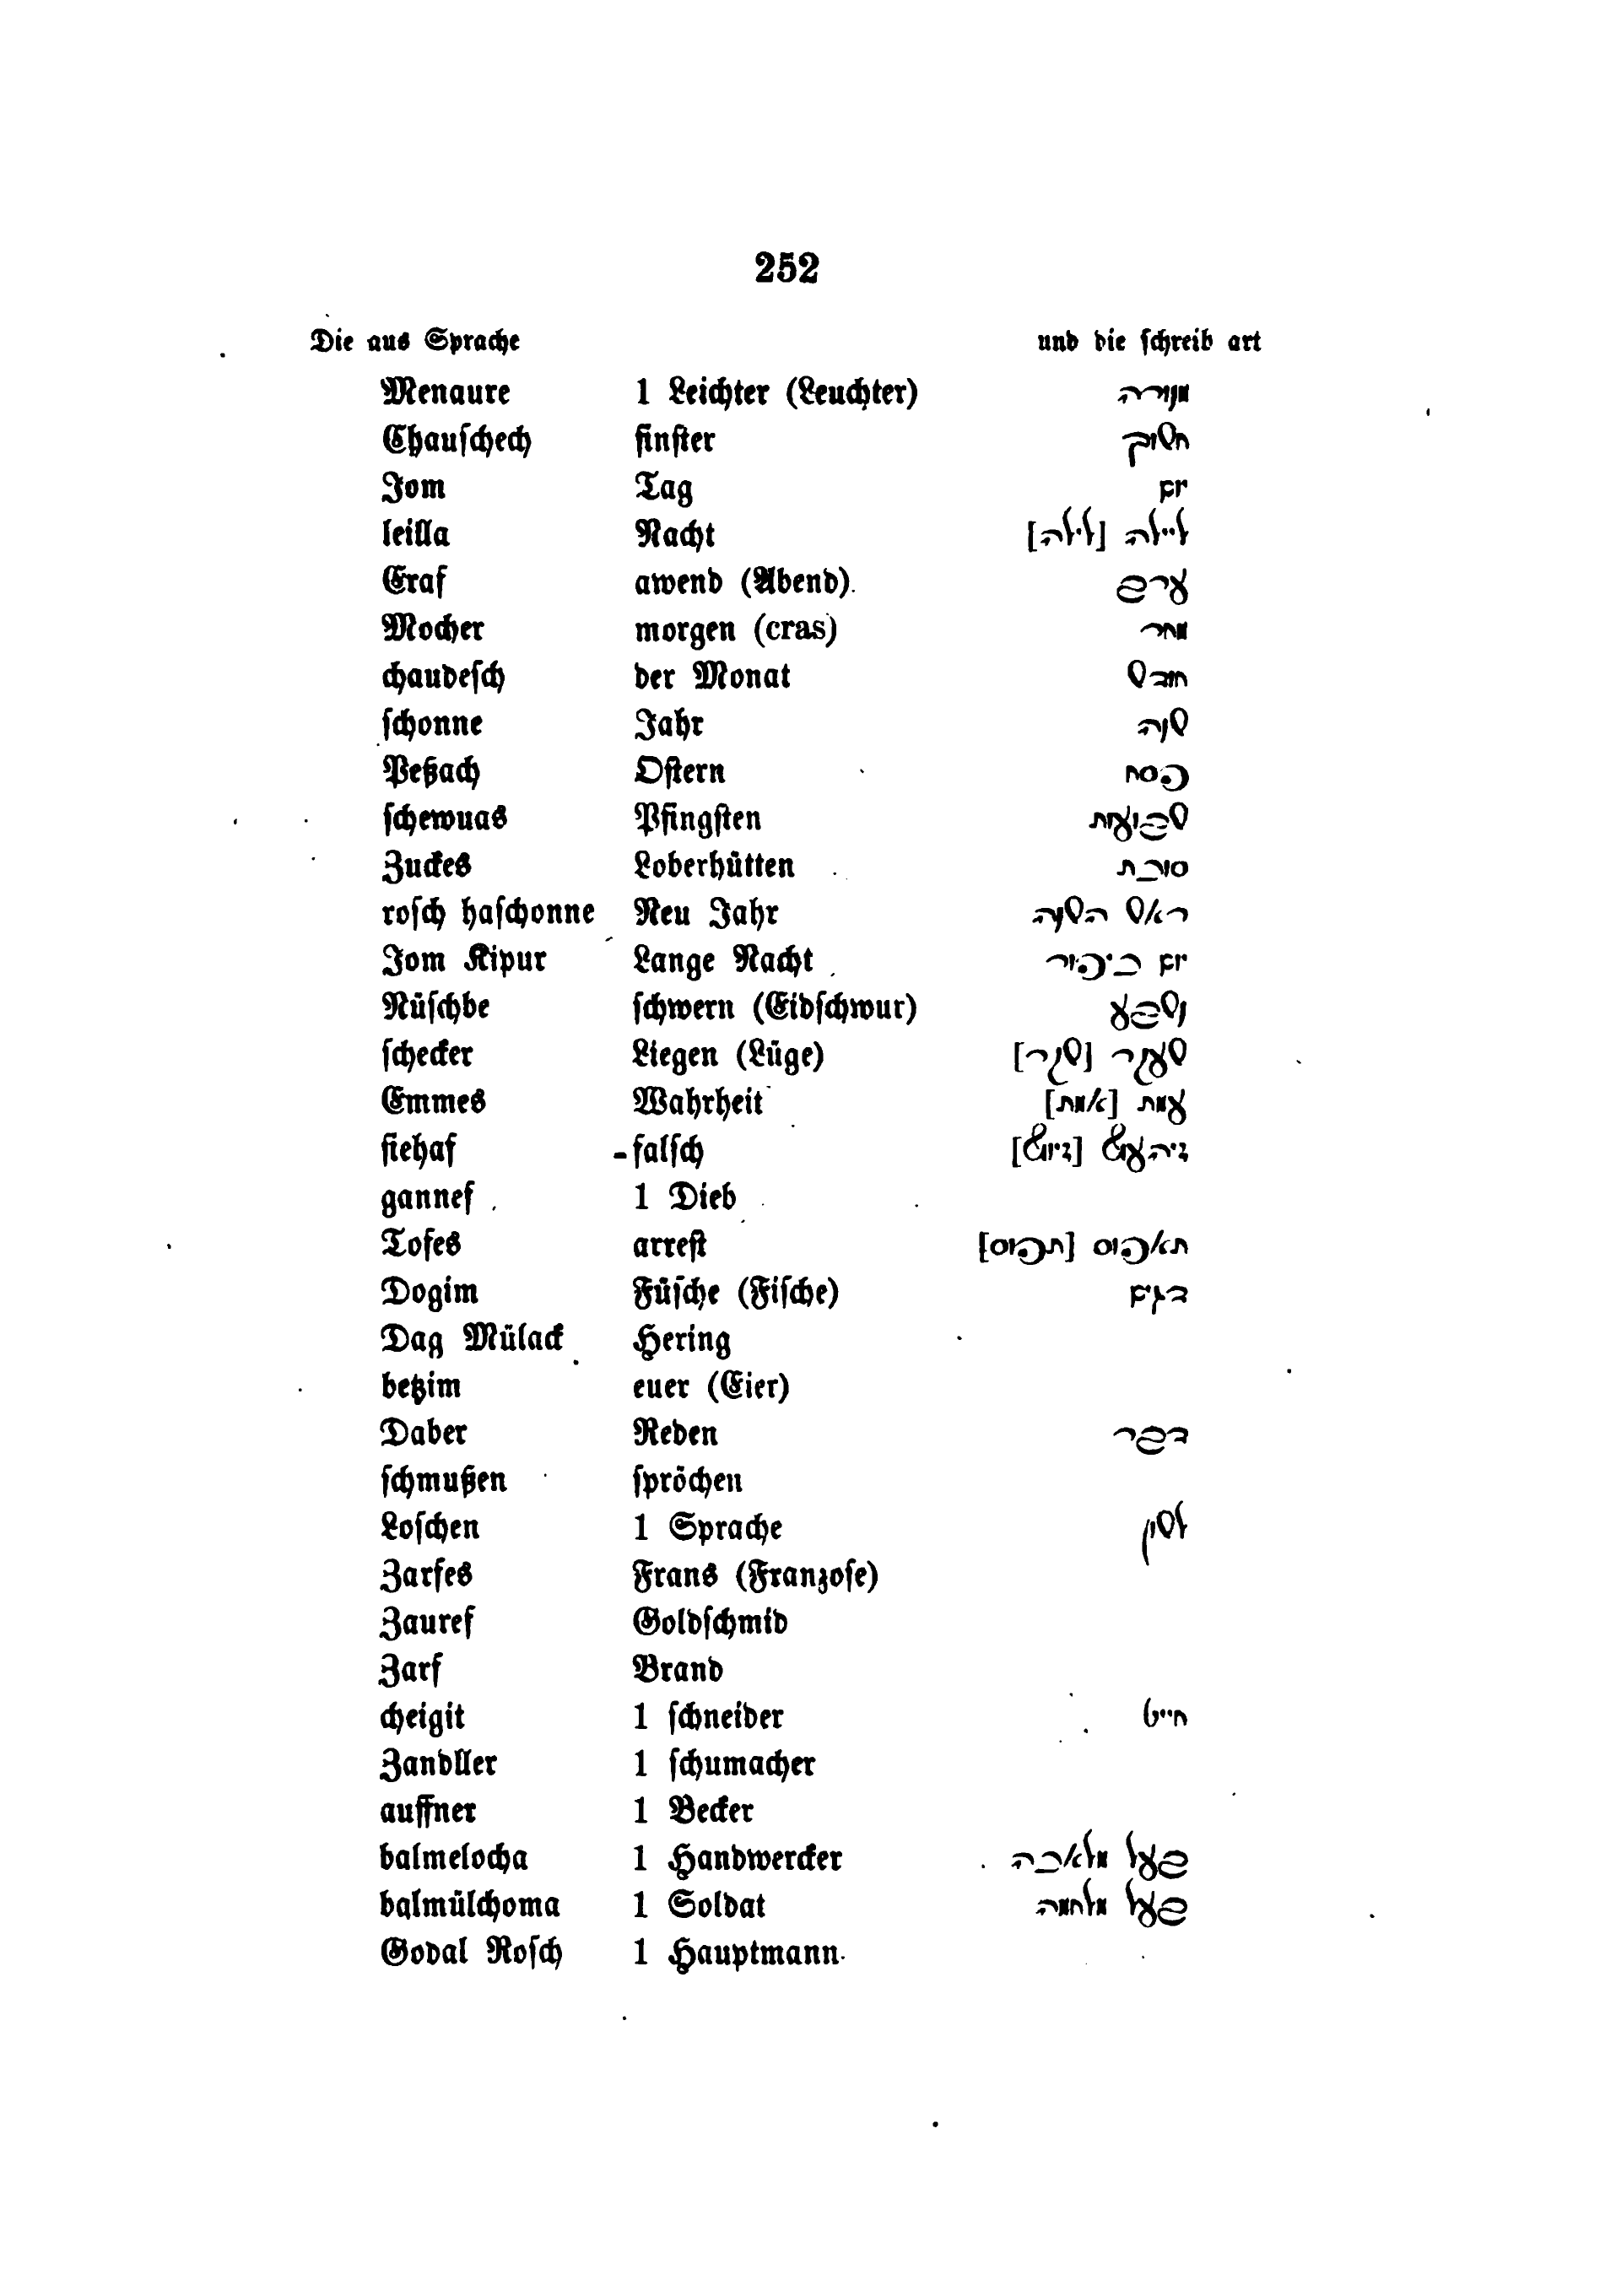 252
Die aus Sprache und die ſchreib art
Menaure 1 Leichter (Leuchter) מנורה
Chauſchech finſter חשוך
Jom Tag יום
leilla Nacht לײלה [לילה]
Eraf awend (Abend) ערב
Mocher morgen (cras) מחר
chaudeſch der Monat חודש
ſchonne Jahr שנה
Peßach Oſtern פסח
ſchewuas Pfingſten שבועות
Zuckes Loberhütten סוכת
roſch haſchonne Neu Jahr ראש השנה
Jom Kipur Lange Nacht יום כיפור
Nüſchbe ſchwern (Eidſchwur) נשבע
ſchecker Liegen (Lüge) שעקר [שקר]
Emmes Wahrheit עמת [אמת]
fiehaf falſch
gannef 1 Dieb
Tofes arreſt תאפוס [תפוס]
Dogim Füſche (Fiſche) דגים
Dag Mülack Hering
betzim euer (Eier)
Daber Reden דבר
ſchmußen ſpröchen
Loſchen 1 Sprache לשון
Zarfes Frans (Franzoſe)
Zauref Goldſchmid
Zarf Brand
cheigit 1 ſchneider חײט
Zandller 1 ſchumacher
auffner 1 Becker
balmelocha 1 Handwercker בעל מלאכה
balmülchoma 1 Soldat בעל מלחמה
Godal Roſch 1 Hauptmann